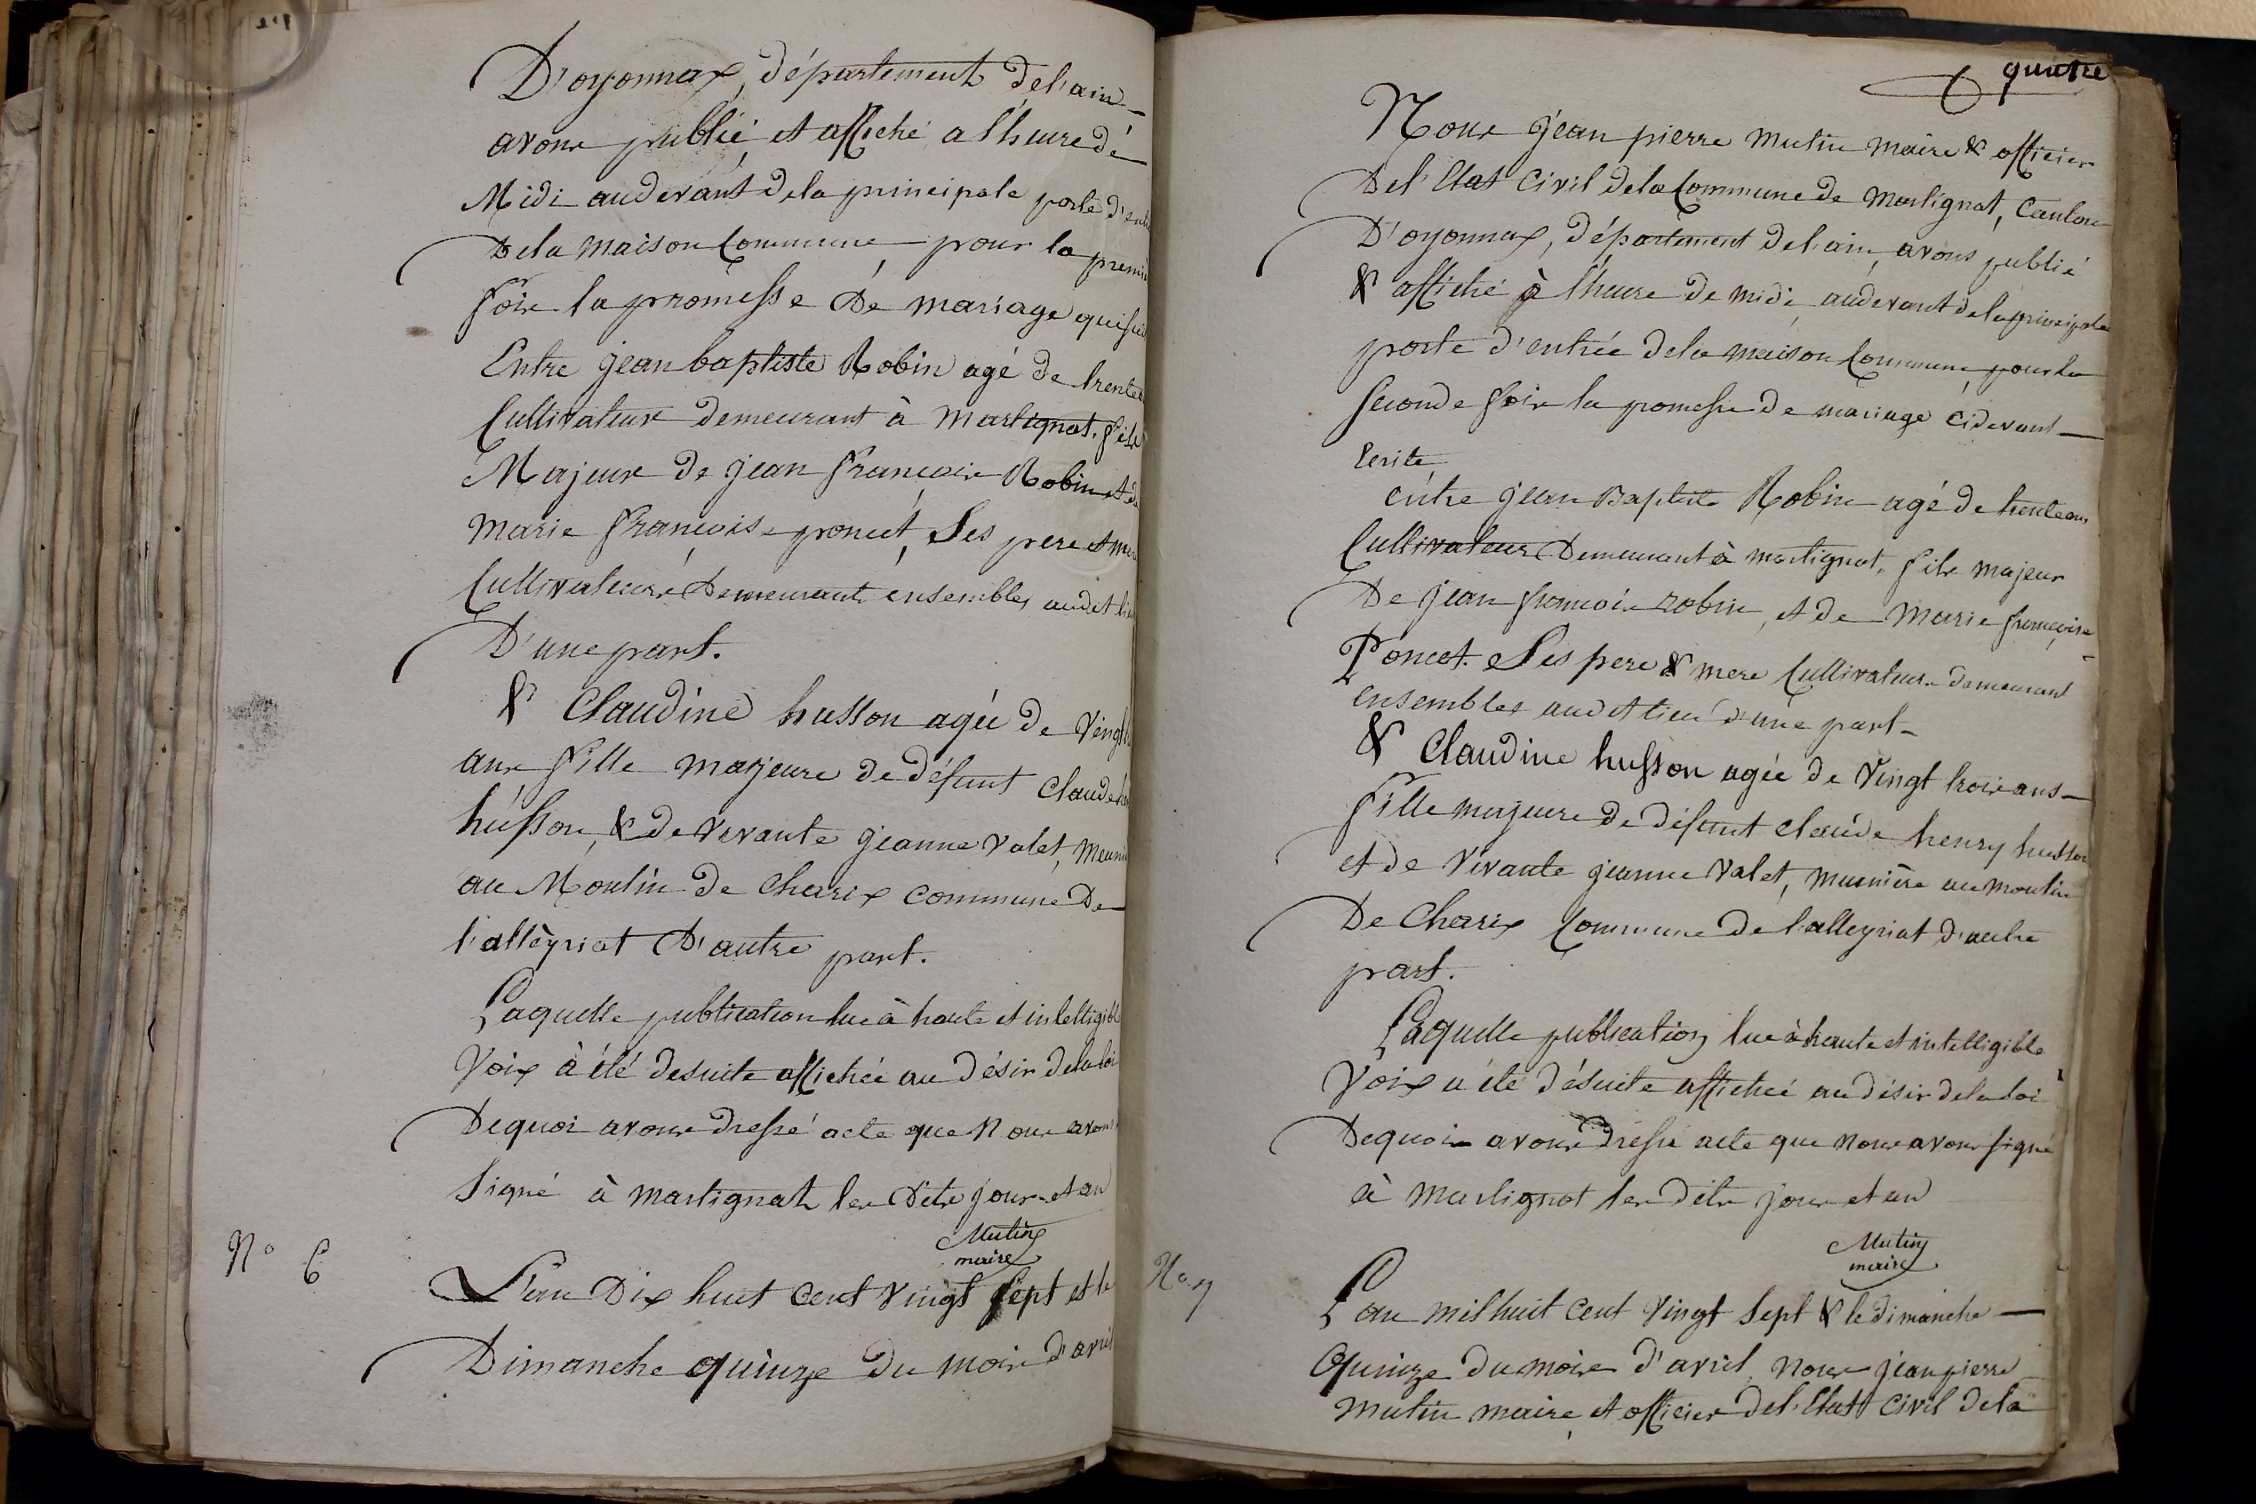 D'oyonnax, département de l'ain
avons publié et affiché a l'heure dé
Midi audevant dela principale porte d'
Dela maison Commune pour la
fois la promesse De mariage qui
Entre jean baptiste Robin agé de trente
Cultivateur demeurant à Martignat, fils
Majeur de jean francois Robin et de
marie françoise poncet, Ses pere et
Cultivateurs Demeurants ensembles audit
D'une part.
& Claudine husson agée de Vingt
ans fille majeure de défunt Claude
husson, & de vivante jeanne Valet,
au Moulin de Charix commune De
l'alleyriat D'autre part.
Laquelle publication lue à haute et intelligible
Voix à été desuite affichée au désir dela loi
Dequoi avons dressé acte que Nous avons
Signé à martignat les Dits jour et an
Mutin
maire
N° 6
L'an Dix huit Cent Vingt Sept et le
Dimanche quinze du mois d'avril
quatre
Nous jean pierre mutin maire & officier
Del'Etat Civil dela Commune de Martignat, Canton
D'oyonnax, département del'ain, avons publié
& affiché à l'heure de midi, audevant dela principale
porte d'entrée dela maison Commune pour la
seconde fois la promesse de mariage cidevant
Ecrite
entre jean Baptiste Robin agé de trente ans
Cultivateur Demeurant à martignat, fils majeur
De jean francois robin, et de marie françoise
Poncet. Ses pere & mere Cultivateurs demeurant
ensembles audit lieu d'une part
& Claudine husson agée de Vingt trois ans
fille majeure de défunt claude henry husson
et de Vivante jeanne Valet, munière au moulin
De Charix Commune de l'alleyriat d'autre
part.
Laquelle publication lue à haute et intelligible
Voix a été désuite affichée au désir dela loi
Dequoi avons dressé acte que nous avons signé
à Martignat les dits jour et an
Mutin
maire
N° 7
L'an mil huit cent Vingt Sept & le dimanche
Quinze du mois d'avril, nous jean pierre
mutin maire et officier del'Etat Civil dela